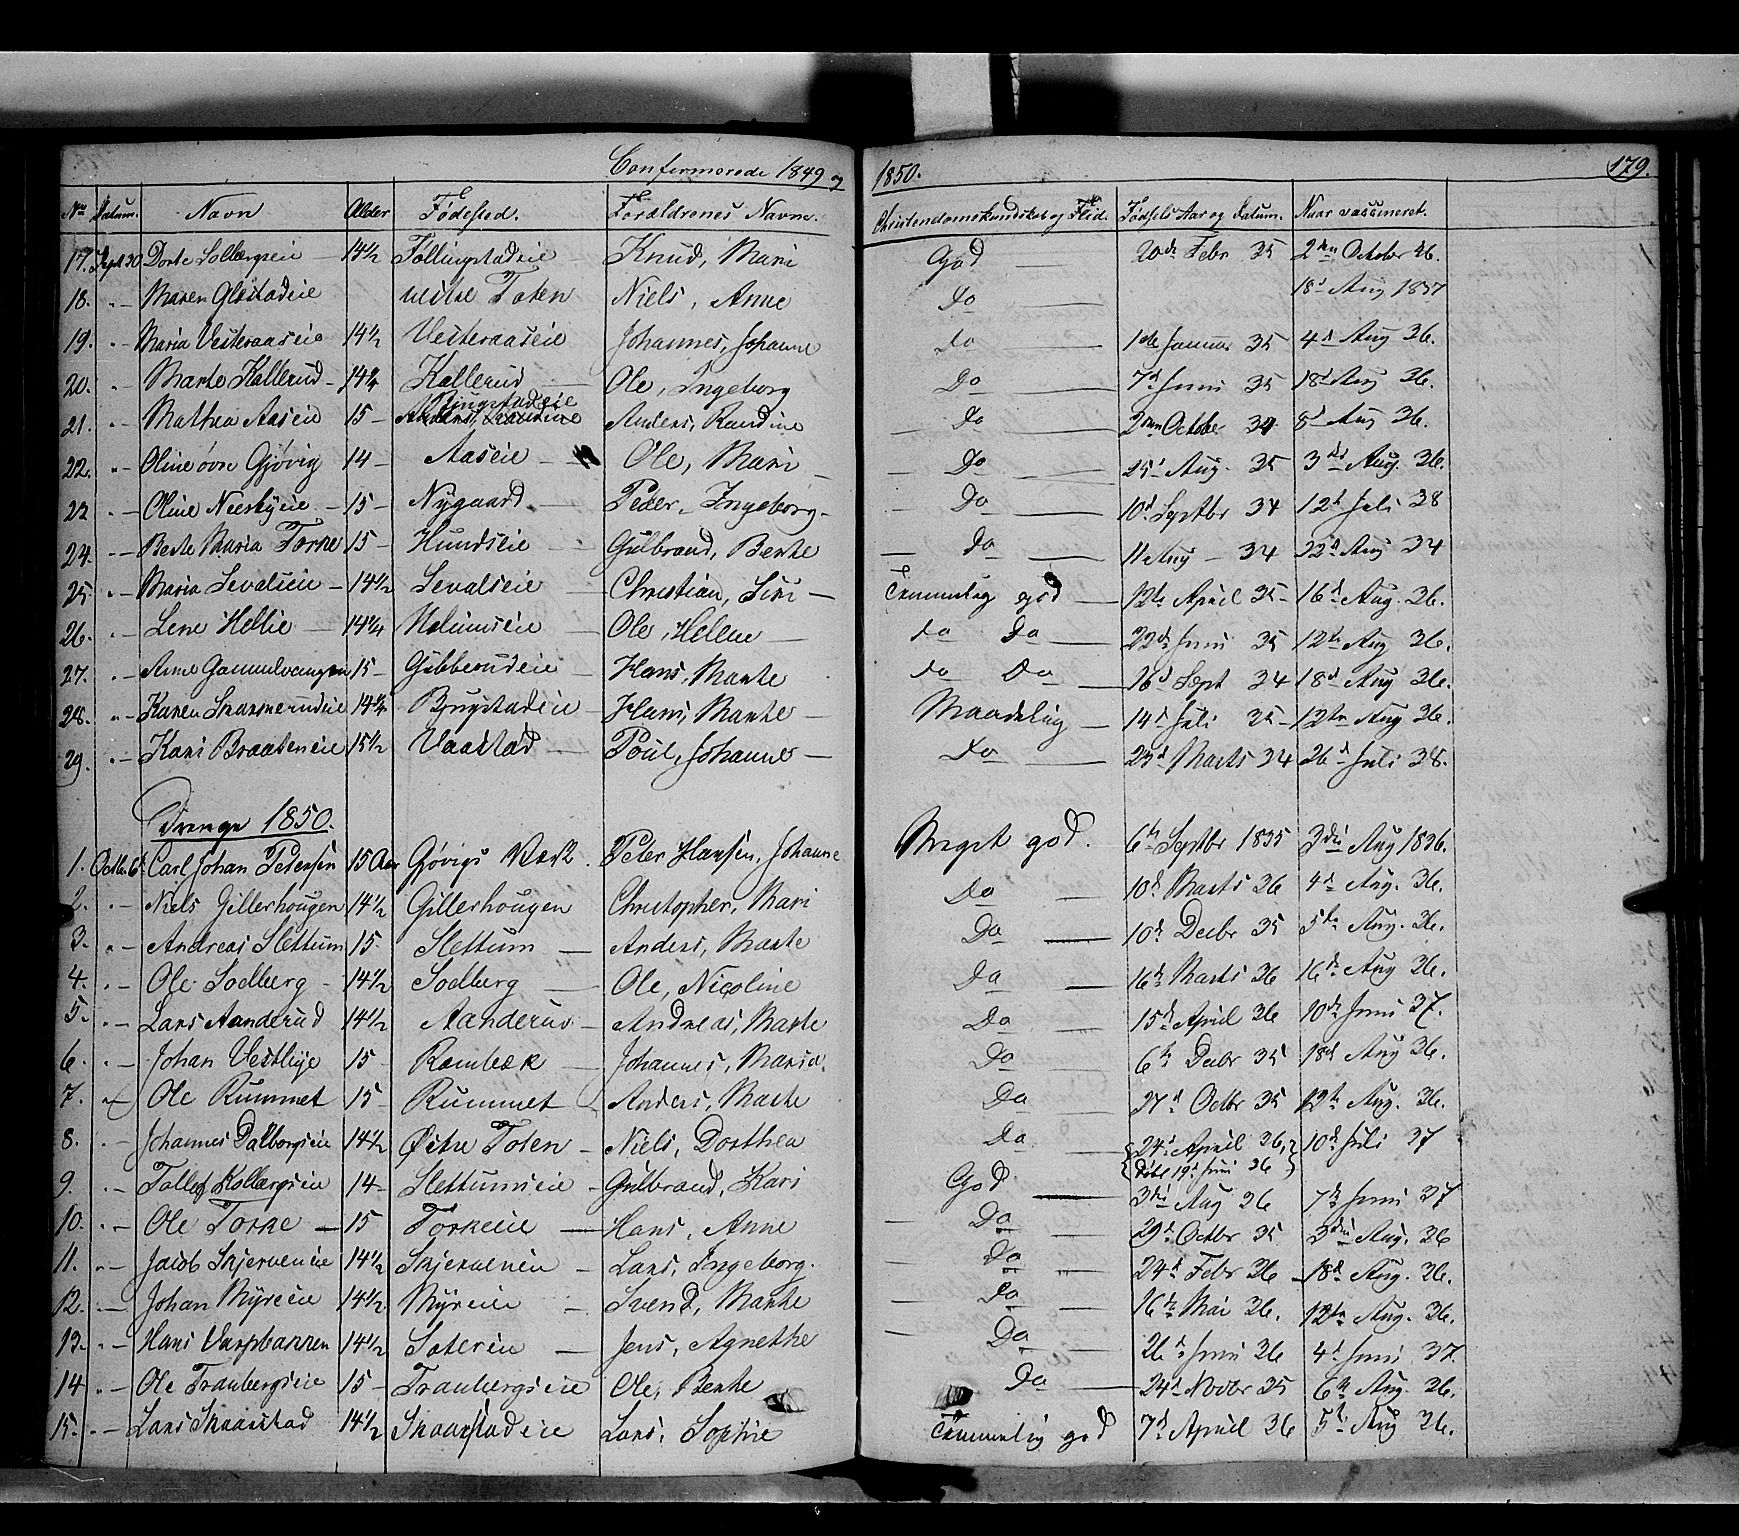 Confirmerede 1849 og 1850. 179.
No Datum. Navn Alder Fødested. Forældrenes Navne. Christendomskundskab og Flid. Fødsels Aar og Datum. Naar vaccineret.
17. Sept 30 Dorte Kollbergseie 14 1/2 Føllingstadeie Knud, Mari God 20de Febr 35 2den October 36.
18. "- Maren Glæstadeie Vestre Toten Niels, Anne Do 18d Aug 1837
19. "- Maria Vesteraaseie 14 1/2 Vesteraaseie Johannes, Johanne Do 1de Januar 35 4d Aug 36.
20. "- Marte Kallerud 14 1/4 Kallerud Ole, Ingeborg Do 7d Juni 35 18d Aug 36.
21. "- Mathea Aaseie 15 Ringstadeie Anders, Randine Do 2den October 34 8d Aug 36.
22. "- Oline øvre Gjøvig 14 Aaseie Ole, Mari Do 25d Aug. 35 3die Aug. 36.
23. "- Oline Neerbyeie 15 Nygaard Peder, Ingeborg Do 10d Septbr 34 12te Juli 38
24. "- Berte Maria Torke 15 Hundseie Gulbrand, Berthe Do 11te Aug 34 22d Aug 34
25. "- Maria Sevalseie 14 1/2 Sevalseie Christian, Siri Temmelig god 12te April 35 16d Aug. 36.
26. "- Lene Hellie 14 1/4 Ole, Helene do Do 22de Juni 35 12te Aug 36.
27. "- Anne Gammelvangen 15 Gibberudeie Hans, Marthe do Do 26d Sept 34 18d Aug 36.
28. "- Karen Skammerudeie 14 1/4 Bjugstadeie Hans, Marthe Maadelig 14d Juli 35 12te Aug 36.
29. "- Kari Braateneie 15 1/2 Vaastad Poul, Johanne Do 23d Marts 34 26d Juli 38.
Drenge 1850.
1. Octbr 6te Carl Johan Pedersen 15 Aar Gjøvigs Værk. Peter Hansen, Johanne Meget god. 6te Septbr 1835 3die Aug 1836.
2. "- Niels Gillerhougen 14 1/2 Gillerhougen Christopher, Mari Do 10d Marts 36 4de Aug. 36.
3. "- Andreas Slettum 15 Slettum Anders, Marthe Do 10d Decbr 35 5te Aug. 36.
4. "- Ole Sodberg 14 1/2 Sodberg Ole, Nicoline Do 16de Marts 36 16de Aug 36.
5. "- Lars Aanderud 14 1/2 Aanderud Andreas, Marte Do 15d April 36 10de Juni 37.
6. "- Johan Vestlige 15 Rambæk Johannes, Maria. Do 6te Decbr 35 18d Aug 36.
7. "- Ole Rummet 15 Rummet Anders, Marte Do 27d Octbr 35 12te Aug. 36.
8. "- Johannes Dalborgseie 14 1/2 Østre Toten Niels, Dorthea Do {24d April 36, 10d Juli 37
{døbt 19d Juni 36}
9. "- Tollef Kollbergseie 14 Slettumseie Gulbrand, Kari God 3die Aug 36 7de Juni 37
10. "- Ole Torke 15 Torkeeie Hans, Anne Do 29d Octbr 35 3die Aug. 36
11. "- Jacob Skjerveneie 14 1/2 Skjerveneie Lars, Ingeborg. Do 24d Febr 36 18d Aug. 36.
12. "- Johan Myreeie 14 1/2 Myreeie Svend, Marthe Do 16de Mai 36. 12te Aug. 36.
13. "- Hans Varpbakken 14 1/2 Jens, Agnethe Do 26d Juni 36 4d Juni 37.
14 "- Ole Tranbergseie 15 Tranbergseie Ole, Berthe Do 24d Novbr 35 6te Aug. 36.
15. "- Lars Skaarstad 14 1/2 Skaarstadeie Lars, Sophie Temmelig god 7d April 36 5te Aug 36.